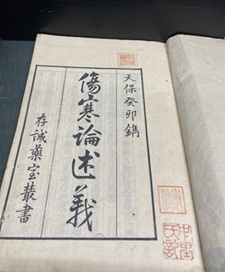 天保癸卯鐫
傷寒論述義
存誠藥室叢書